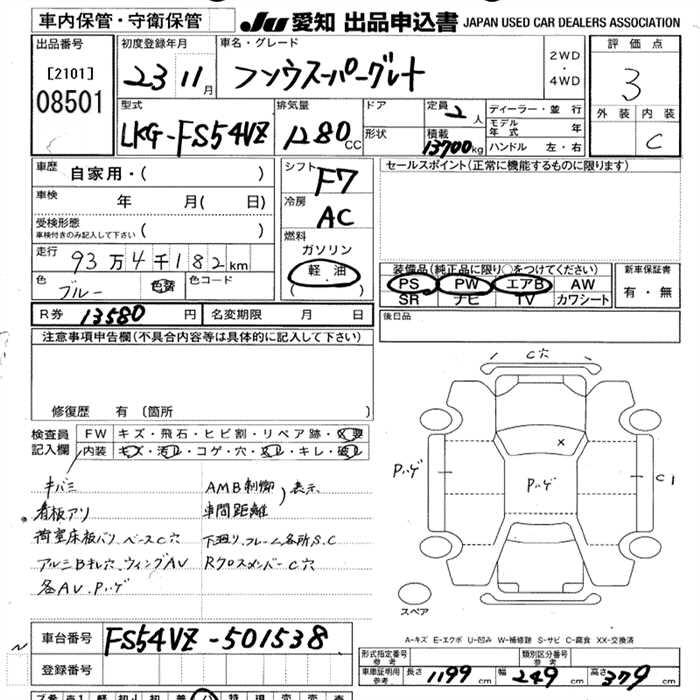 車内保管・守衛保管
JU 愛知 出品申込書 JAPAN USED CAR DEALERS ASSOCIATION
出品番号
[2101]
08501
初度登録年月
23 11月
車名・グレード
フソウスーパーグレート
2WD
・
4WD
評価点
3
外装 内装
C
型式
LKG-FS54VZ
排気量
1280cc
ドア
形状
定員 2人
積載 13700kg
ディーラー・並行
モデル年式 年
ハンドル 左・右
車歴 自家用・( )
車検 年 月(日)
受検形態
車検付きのみ記入して下さい ( )
走行 93万4千182km
色 ブルー 色替 色コード
シフト F7
冷房 AC
燃料
ガソリン
軽油
( )
セールスポイント(正常に機能するものに限ります)
装備品(純正品に限り○をつけてください)
PS PW エアB AW
SR ナビ TV カワシート
新車保証書
有・無
R券 13580円 名変期限 月 日
後日品
注意事項申告欄(不具合内容等は具体的に記入して下さい)
修復歴 有 (箇所 )
検査員記入欄
FW キズ・飛石・ヒビ割・リペア跡・X要
内装 キズ・汚レ・コゲ・穴・スレ・キレ・破レ
キバミ
看板アリ
荷室床板バリ、ベースC穴
アルミBキレ穴、ウィングAV
各AV、Pハゲ
AMB制御
車間距離 )表示
下廻り、フレーム各所S.C
RクロスメンバーC穴
C穴
x
Pハゲ
Pハゲ
C1
スペア
A-キズ E-エクボ U-凹み W-補修跡 S-サビ C-腐食 XX-交換済
車台番号 FS54VZ-501538
登録番号
形式指定番号 参考
類別区分番号 参考
車庫証明用 参考 長さ 1199cm 幅 249cm 高さ 379cm